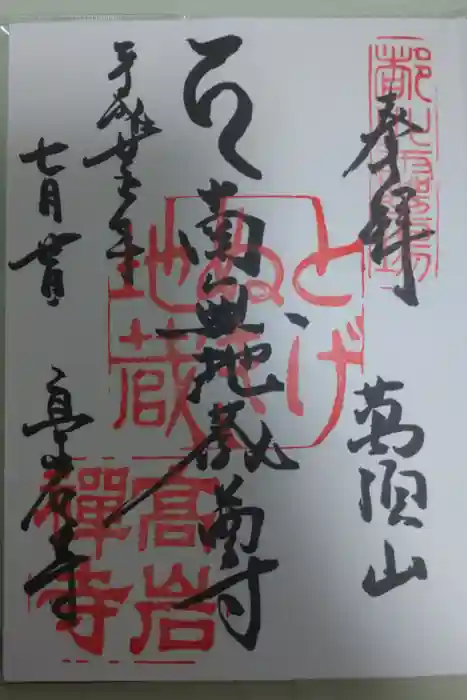 奉拝
萬頂山
南無地蔵尊
平成廿七年
七月廿日
高岩寺
とげぬき
地蔵
高岩
禪寺